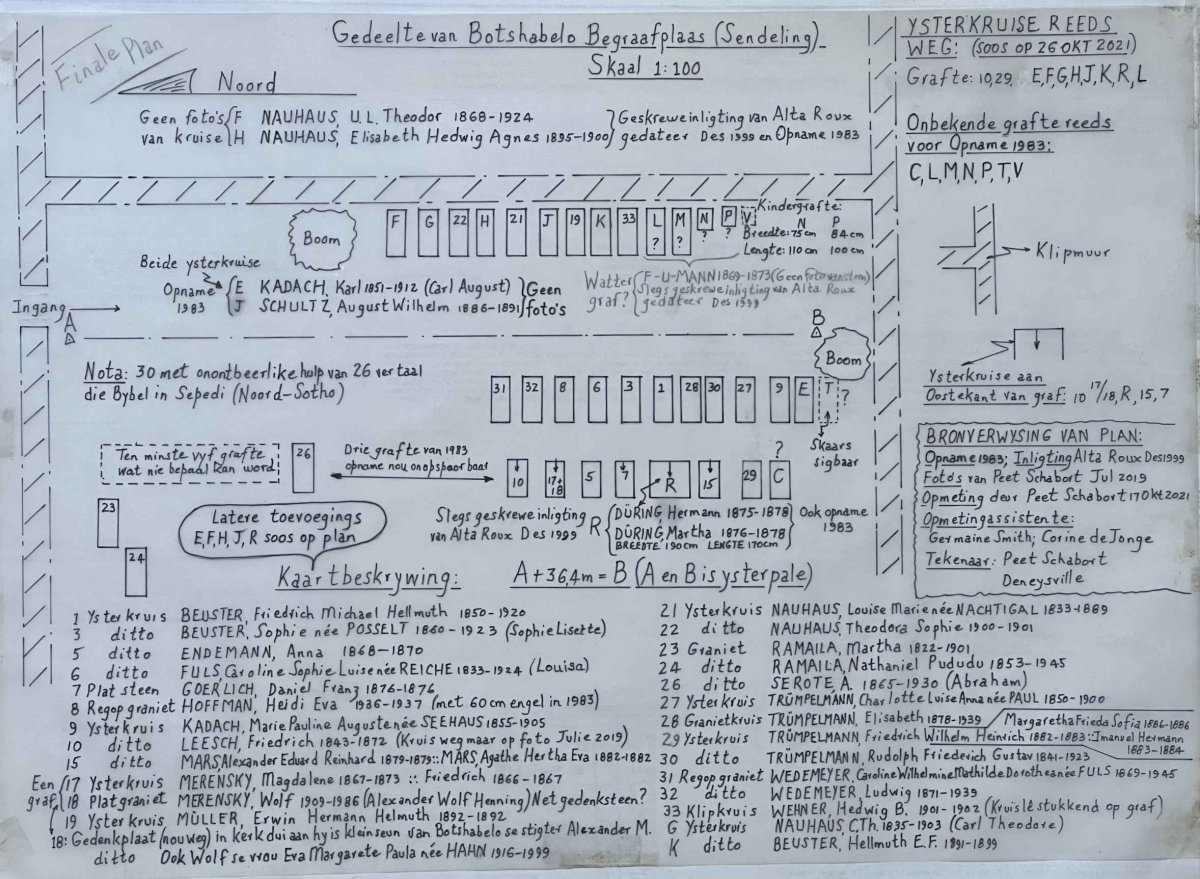 Finale Plan
Gedeelte van Botshabelo Begraafplaas (Sendeling)
Skaal 1:100
Noord
Geen foto's van kruise
F NAUHAUS, U.L. Theodor 1868-1924
H NAUHAUS, Elisabeth Hedwig Agnes 1895-1900
Geskrewe inligting van Alta Roux
gedateer Des 1999 en Opname 1983
YSTERKRUISE REEDS
WEG: (SOOS OP 26 OKT 2021)
Grafte: 10,29, E,F,G,H,J,K,R,L
Onbekende grafte reeds
voor Opname 1983:
C,L,M,N,P,T,V
Boom
F G 22 H 21 J 19 K 33 L M N P V
? ? ? ?
Kindergrafte:
N P
Breedte: 75cm 84cm
Lengte: 110cm 100cm
Klipmuur
Beide ysterkruise
Opname
1983
E KADACH, Karl 1851-1912 (Carl August)
J SCHULTZ, August Wilhelm 1886-1891
Geen
foto's
Watter
graf?
F-U-MANN 1869-1873 (Geen foto van steen)
Slegs geskrewe inligting van Alta Roux
gedateer Des 1999
Ingang
A
B
Boom
Nota: 30 met onontbeerlike hulp van 26 vertaal
die Bybel in Sepedi (Noord-Sotho)
31 32 8 6 3 1 28 30 27 9 E T ?
Skaars
sigbaar
Ysterkruise aan
Oostekant van graf: 10 17/18, R, 15, 7
Ten minste vyf grafte
wat nie bepaal kan word
26
Drie grafte van 1983
opname nou onopspoorbaar
?
10 17+18 5 7 R 15 29 C
23
24
Latere toevoegings
E,F,H,J,R soos op plan
Slegs geskrewe inligting
van Alta Roux Des 1999
R
DÜRING, Hermann 1875-1878
DÜRING, Martha 1876-1878
BREEDTE 190cm LENGTE 170cm
Ook opname
1983
BRONVERWYSING VAN PLAN:
Opname 1983; Inligting Alta Roux Des 1999
Foto's van Peet Schabort Jul 2019
Opmeting deur Peet Schabort 17 Okt 2021
Opmetingassistente:
Germaine Smith; Corine de Jonge
Tekenaar: Peet Schabort
Deneysville
Kaartbeskrywing: A+36,4m = B (A en B is ysterpale)
1 Ysterkruis BEUSTER, Friedrich Michael Hellmuth 1850-1920
3 ditto BEUSTER, Sophie née POSSELT 1860-1923 (Sophie Lisette)
5 ditto ENDEMANN, Anna 1868-1870
6 ditto FULS, Caroline Sophie Luise née REICHE 1833-1924 (Louisa)
7 Plat steen GOERLICH, Daniel Franz 1876-1876
8 Regop graniet HOFFMAN, Heidi Eva 1936-1937 (met 60cm engel in 1983)
9 Ysterkruis KADACH, Marie Pauline Auguste née SEEHAUS 1855-1905
10 ditto LEESCH, Friedrich 1843-1872 (Kruis weg maar op foto Julie 2019)
15 ditto MARS, Alexander Eduard Reinhard 1879-1879 :: MARS, Agathe Hertha Eva 1882-1882
Een graf
17 Ysterkruis MERENSKY, Magdalene 1867-1873 :: Friedrich 1866-1867
18 Plat graniet MERENSKY, Wolf 1909-1986 (Alexander Wolf Henning) Net gedenksteen?
19 Ysterkruis MÜLLER, Erwin Hermann Helmuth 1892-1892
18: Gedenkplaat (nou weg) in kerk dui aan hy is kleinseun van Botshabelo se stigter Alexander M.
ditto Ook Wolf se vrou Eva Margarete Paula née HAHN 1916-1999
21 Ysterkruis NAUHAUS, Louise Marie née NACHTIGAL 1833-1889
22 ditto NAUHAUS, Theodora Sophie 1900-1901
23 Graniet RAMAILA, Martha 1822-1901
24 ditto RAMAILA, Nathaniel Pududu 1853-1945
26 ditto SEROTE, A. 1865-1930 (Abraham)
27 Ysterkruis TRÜMPELMANN, Charlotte Luise Anna née PAUL 1850-1900
28 Granietkruis TRÜMPELMANN, Elisabeth 1878-1939 / Margaretha Frieda Sofia 1886-1886
29 Ysterkruis TRÜMPELMANN, Friedrich Wilhelm Heinrich 1882-1883 :: Imanuel Hermann 1883-1884
30 ditto TRÜMPELMANN, Rudolph Friederich Gustav 1841-1923
31 Regop graniet WEDEMEYER, Caroline Wilhelmine Mathilde Dorothea née FULS 1869-1945
32 ditto WEDEMEYER, Ludwig 1871-1939
33 Klipkruis WEHNER, Hedwig B. 1901-1902 (Kruis lê stukkend op graf)
G Ysterkruis NAUHAUS, C.Th. 1835-1903 (Carl Theodore)
K ditto BEUSTER, Hellmuth E.F. 1891-1899